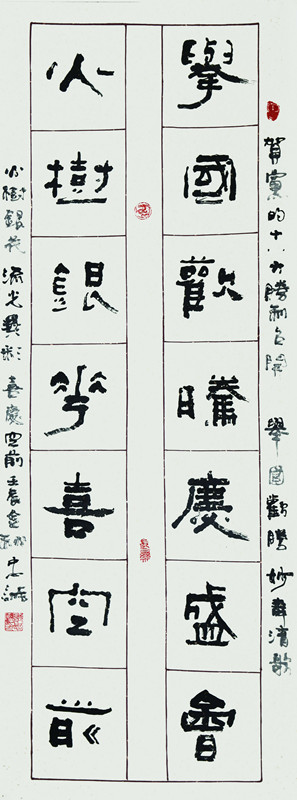 賀黨的十八大勝利召開 舉國歡騰 妙舞清歌
舉國歡騰慶盛會
火樹銀花喜空前
火樹銀花 流光異彩 喜慶空前 壬辰金秋 忠